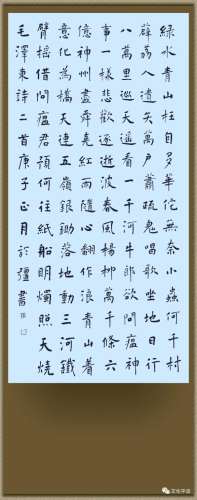 綠水青山枉自多華佗無奈小蟲何千村
薜荔人遺矢萬戶蕭疏鬼唱歌坐地日行
八萬里巡天遙看一千河牛郎欲問瘟神
事一樣悲歡逐逝波春風楊柳萬千條六
億神州盡舜堯紅雨隨心翻作浪青山著
意化為橋天連五嶺銀鋤落地動三河鐵
臂搖借問瘟君何往紙船明燭照天燒
毛澤東詩二首庚子正月於疆書